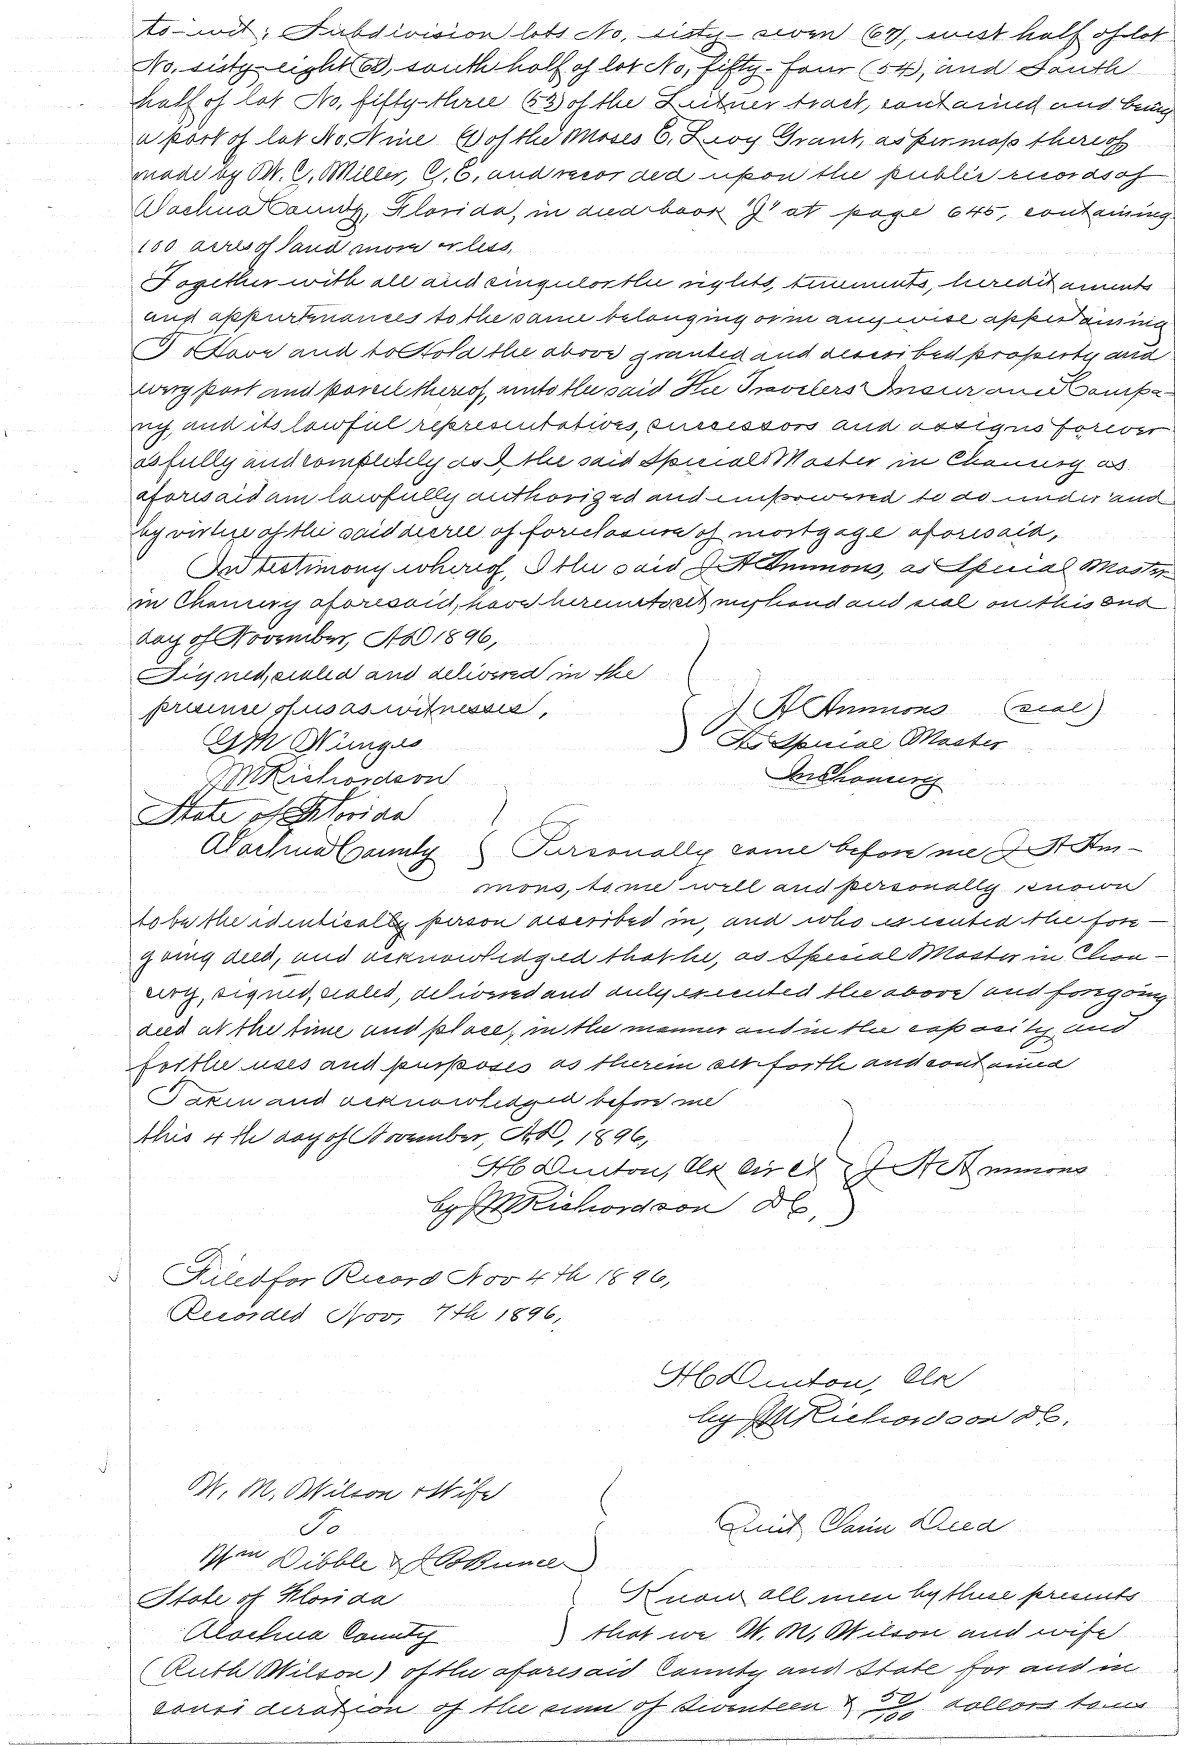 to-wit; Subdivision lots No. sixty-seven (67), west half of lot
No. sixty-eight (68), south half of lot No, fifty-four (54), and South
half of lot No, fifty-three (53) of the Leitner tract, contained and being
a part of lot No. Nine (9) of the Moses E. Levy Grant, as per map thereof
made by W. C. Miller, C. E. and recorded upon the public records of
Alachua County, Florida, in deed book "J" at page 645, containing
100 acres of land more or less.
Together with all and singular the rights, tenements, hereditaments
and appurtenances to the same belonging or in anywise appertaining
To Have and to Hold the above granted and described property and
every part and parcel thereof, unto the said The Travelers Insurance Compa-
ny, and its lawful representatives, successors and assigns forever
as fully and completely as I, the said Special Master in Chancery as
aforesaid am lawfully authorized and empowered to do under and
by virtue of the said decree of foreclosure of mortgage aforesaid,
In testimony whereof, I the said J A Ammons, as Special Master
in Chancery aforesaid, have hereunto set my hand and seal on this 2nd
day of November, AD 1896,
Signed, sealed and delivered in the
presence of us as witnesses,
J A Ammons (seal)
As Special Master
In Chancery
J M Richardson
State of Florida
Alachua County Personally came before me J A Am-
mons, to me well and personally known
to be the identically person described in, and who executed the fore-
going deed, and acknowledged that he, as Special Master in Chan-
cery, signed, sealed, delivered and duly executed the above and foregoing
deed at the time and place, in the manner and in the capacity and
for the uses and purposes as therein set forth and contained
Taken and acknowledged before me
this 4th day of November, A.D, 1896,
H C Denton, Clk Cir Ct J A Ammons
by J M Richardson D C,
Filed for Record Nov 4th 1896,
Recorded Nov, 7th 1896,
H C Denton, Clk
by J M Richardson D C.
W. M. Wilson & Wife
To Quit Claim Deed
Wm Dibble & J B Bunce
State of Florida Know all men by these presents
Alachua County that we W. M. Wilson and wife
(Ruth Wilson) of the aforesaid County and State for and in
consideration of the sum of Seventeen & 50/100 dollars to us